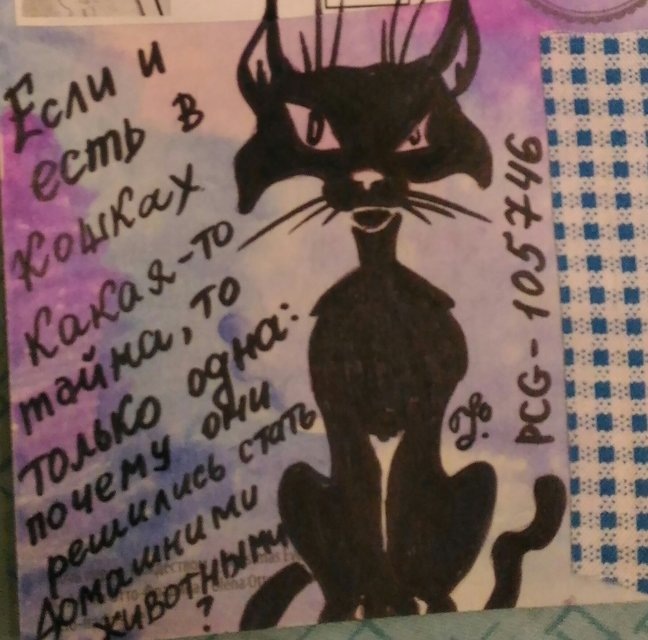 Если и
есть в
кошках
какая-то
тайна, то
только одна:
почему они
решились стать
домашними
животными
?
PCG-105746